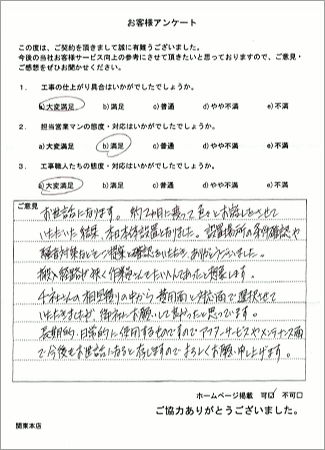 お客様アンケート
この度は、ご契約を頂きまして誠に有難うございました。
今後の当社お客様サービス向上の参考にさせて頂きたいと思っておりますので、ご意見・
ご感想をぜひお聞かせください。
1. 工事の仕上がり具合はいかがでしたでしょうか。
a)大変満足 b)満足 c)普通 d)やや不満 e)不満
2. 担当営業マンの態度・対応はいかがでしたでしょうか。
a)大変満足 b)満足 c)普通 d)やや不満 e)不満
3. 工事職人たちの態度・対応はいかがでしたでしょうか。
a)大変満足 b)満足 c)普通 d)やや不満 e)不満
ご意見
お世話になります。約2ヶ月に渡って色々とお話しさせて
いただいた結果、本日本体設置となりました。設置場所の条件確認や
騒音対策などをご提案と確認をいただき、ありがとうございました。
搬入経路が狭く作業も大変
の相見積りの中から費用面と対応面で選択させて
いただきましたが、御社にお願いして良かったと思っています。
長期的、日常的に使用するものですのでアフターサービスやメンテナンス面
で今後もお世話になると存じますのでよろしくお願い申し上げます。
ホームページ掲載 可☑ 不可□
ご協力ありがとうございました。
関東本店